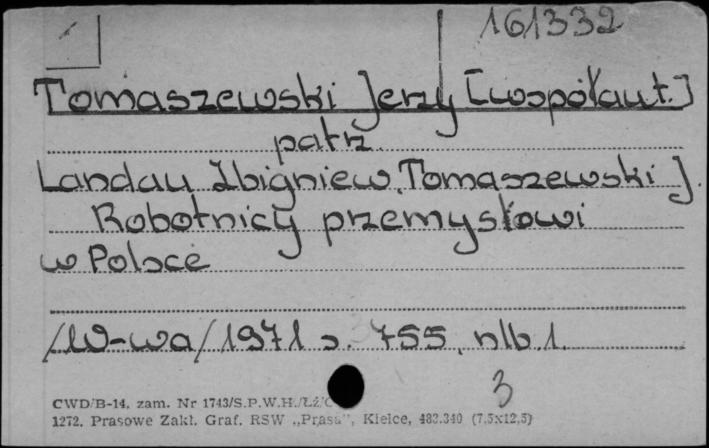 161332
Tomaszewski Jerzy [współaut.]
patrz
Landau Zbigniew, Tomaszewski J.
Robotnicy przemysłowi
w Polsce
/W-wa/ 1971 s. 755, nlb. 1.
3
CWD/B-14, zam. Nr 1743/S.P.W.H./Łź/
1272. Prasowe Zakł. Graf. RSW „Prasa", Kielce, 483.340 (7,5x12,5)